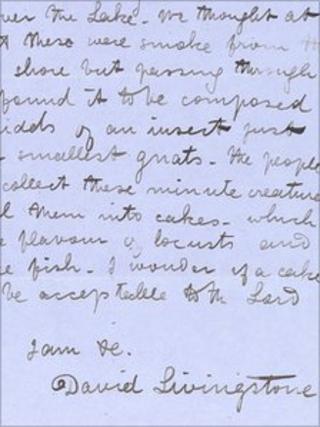 ver the Lake. We thought at
t these were smoke from th
shore but passing through
found it to be composed
of an insect just
smallest gnats. The people
collect these minute creature
l them into cakes. which
e flavour of locusts and
e fish. I wonder if a cake
be acceptable to the Lord
I am &c.
David Livingstone